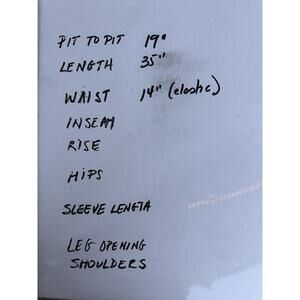 PIT TO PIT 19"
LENGTH 35"
WAIST 14" (elastic)
INSEAM
RISE
HIPS
SLEEVE LENGTH
LEG OPENING
SHOULDERS